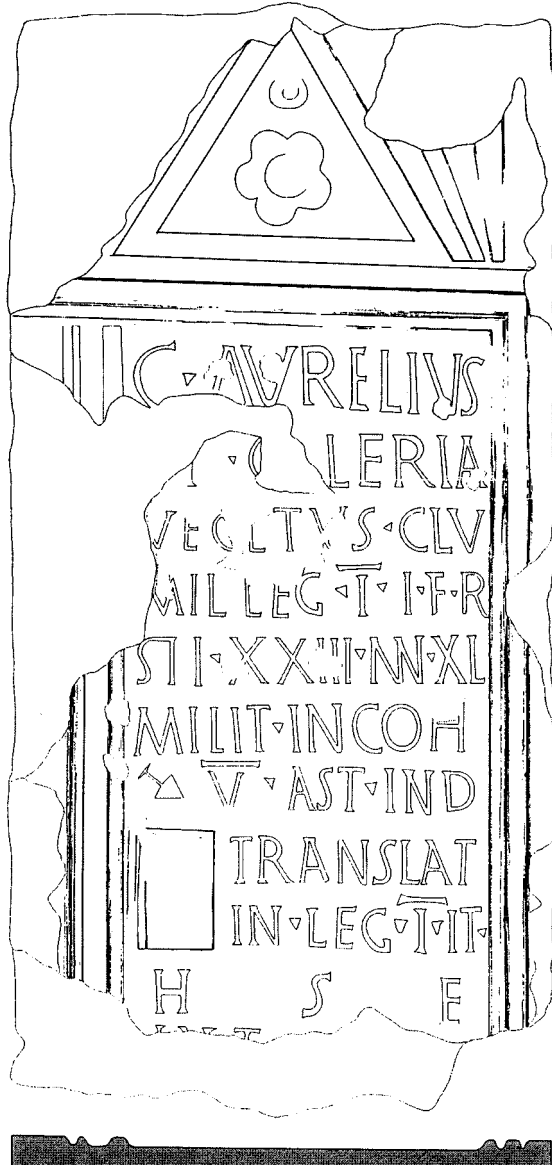 C · AVRELIVS
· GALERIA
VEGETVS · CLV
MIL LEG · I̅ · I · F · R
STI · XXIII · NN · XL
MILIT · INCOH
V̅ · AST · IND
TRANSLAT
IN · LEG · I̅ · IT ·
H S E